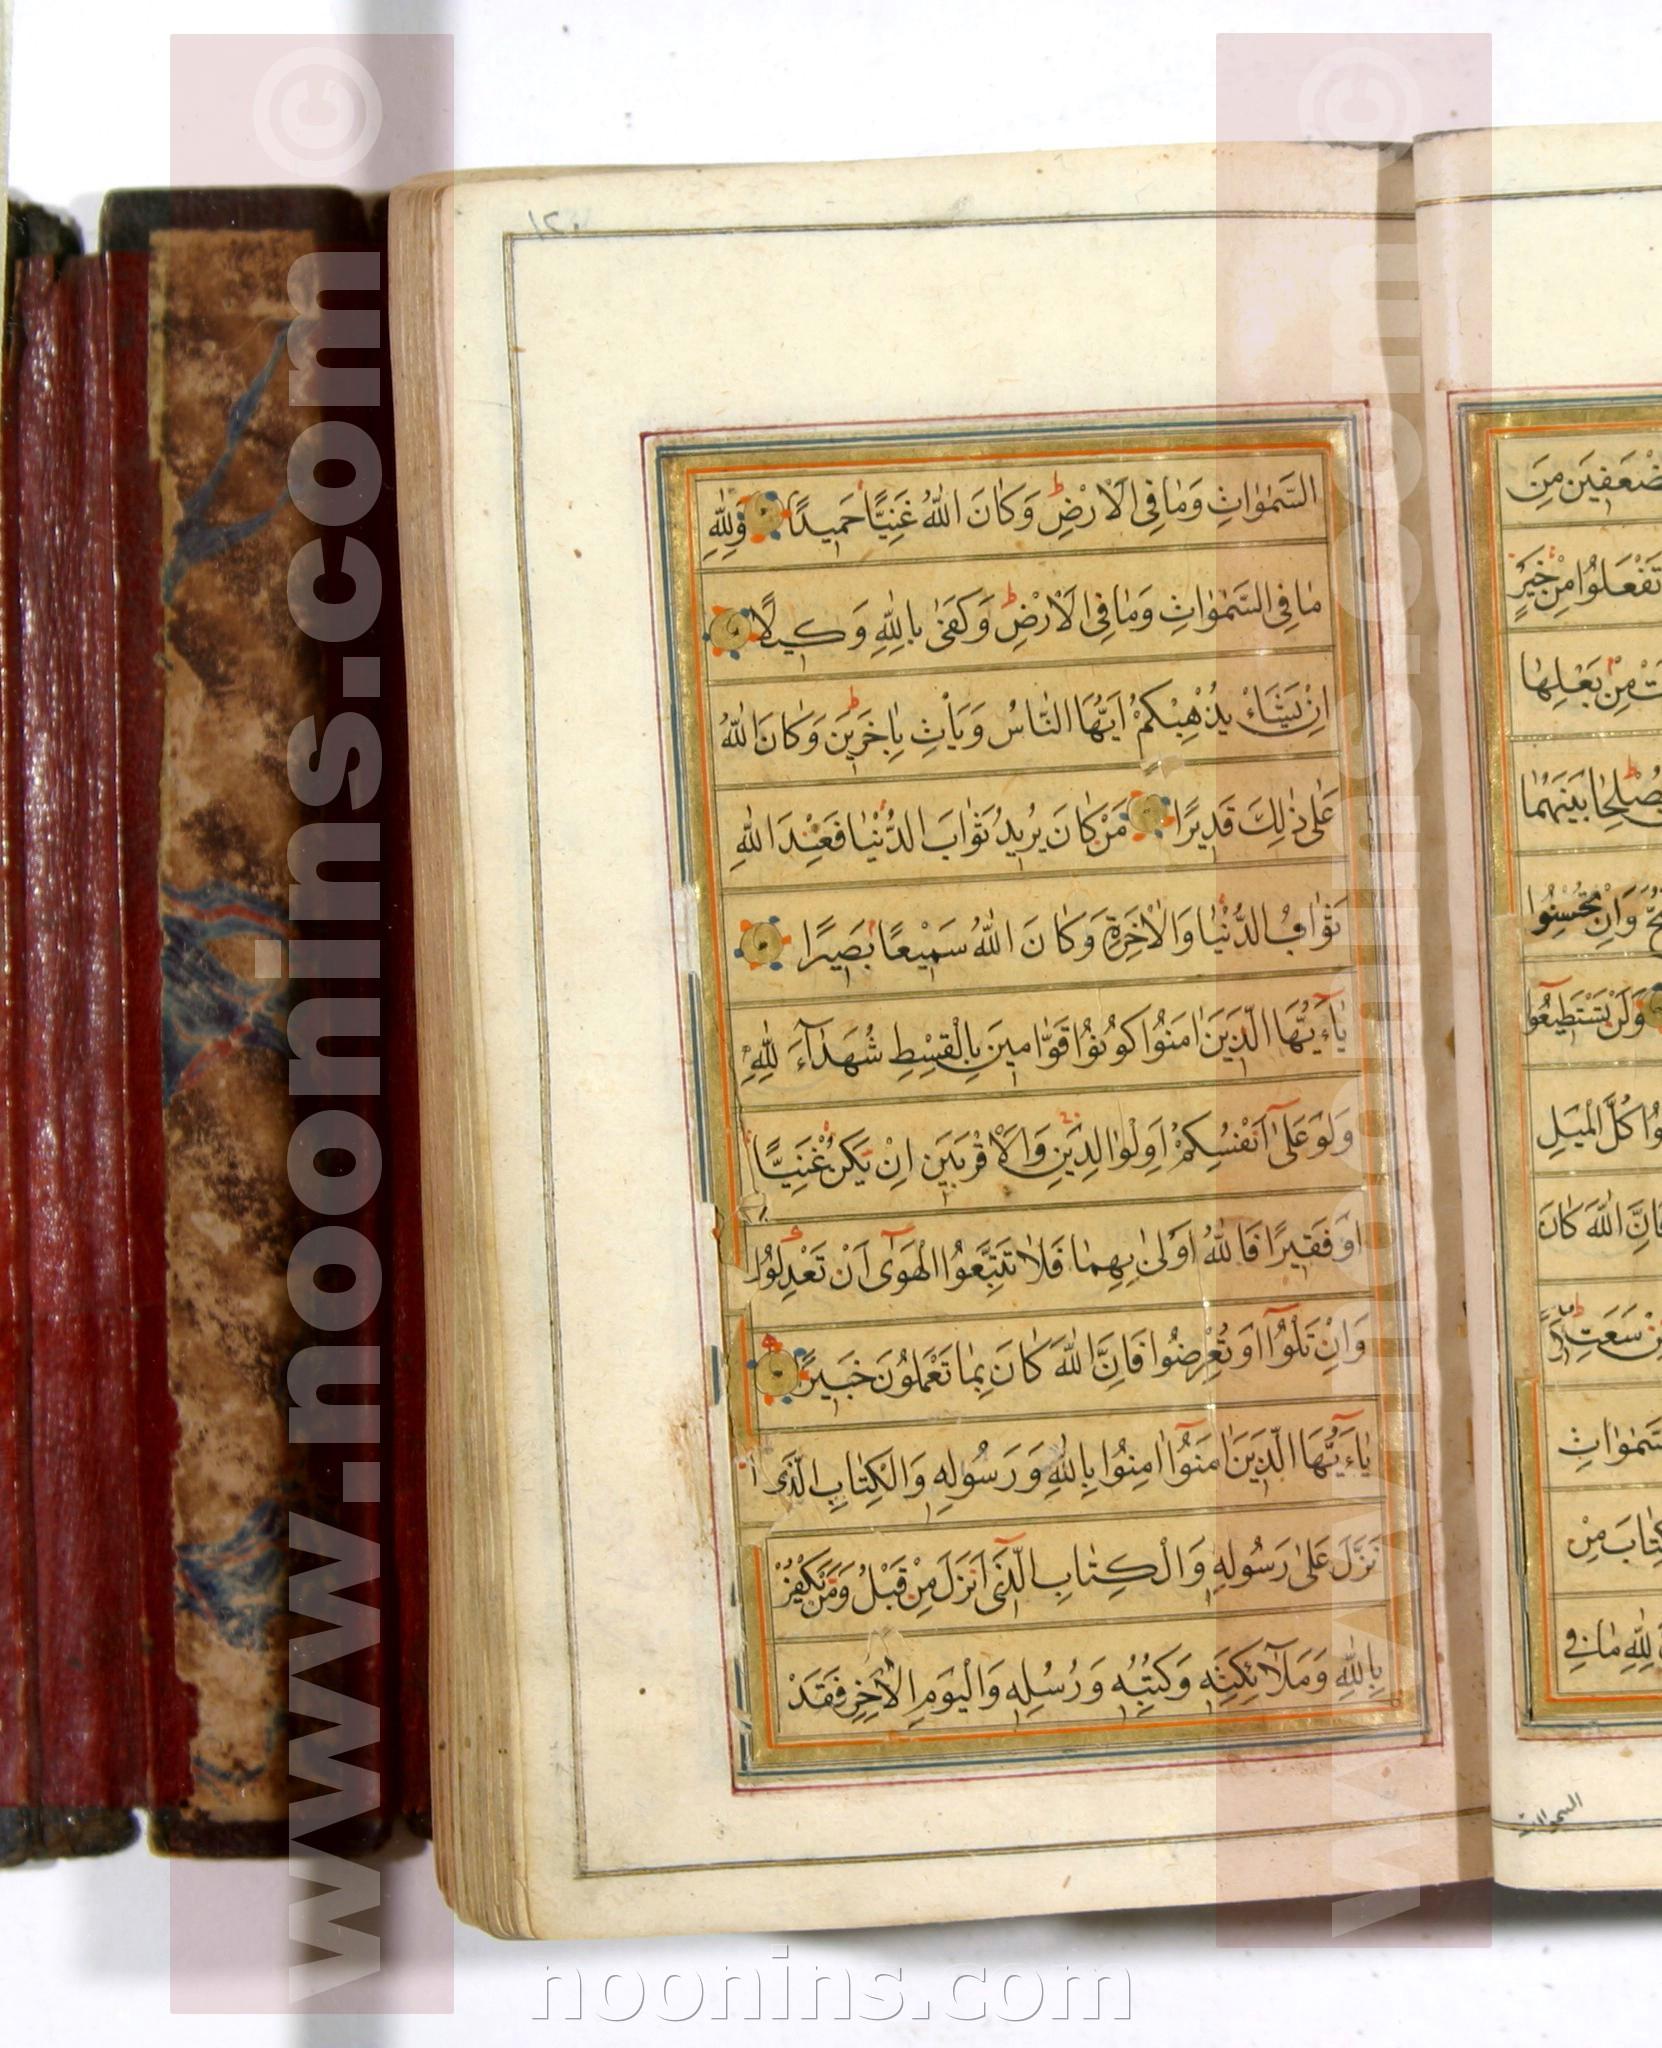 ١٢٠
السَّمٰوٰاتِ وَمٰا فِی الْاَرْضِ وَكٰانَ اللّٰهُ غَنِيًّا حَمِيدًا وَلِلّٰهِ
مٰا فِی السَّمٰوٰاتِ وَمٰا فِی الْاَرْضِ وَكَفىٰ بِاللّٰهِ وَكِيلًا
اِنْ يَشَاْءْ يُذْهِبْكُمْ اَيُّهَا النّٰاسُ وَيَأْتِ بِاٰخَرِينَ وَكٰانَ اللّٰهُ
عَلٰى ذٰلِكَ قَدِيرًا مَنْ كٰانَ يُرِيدُ ثَوٰابَ الدُّنْيٰا فَعِنْدَ اللّٰهِ
ثَوٰابُ الدُّنْيٰا وَالْاٰخِرَةِ وَكٰانَ اللّٰهُ سَمِيعًا بَصِيرًا
يٰاءَيُّهَا الَّذِينَ اٰمَنُوا كُونُوا قَوّٰامِينَ بِالْقِسْطِ شُهَدٰآءَ لِلّٰهِ
وَلَوْ عَلىٰٓ اَنْفُسِكُمْ اَوِ الْوٰالِدَيْنِ وَالْاَقْرَبِينَ اِنْ يَكُنْ غَنِيًّا
اَوْ فَقِيرًا فَاللّٰهُ اَوْلىٰ بِهِمٰا فَلٰا تَتَّبِعُوا الْهَوٰىٓ اَنْ تَعْدِلُوا
وَاِنْ تَلْوُٓا اَوْ تُعْرِضُوا فَاِنَّ اللّٰهَ كٰانَ بِمٰا تَعْمَلُونَ خَبِيرًا
يٰاءَيُّهَا الَّذِينَ اٰمَنُوٓا اٰمِنُوا بِاللّٰهِ وَرَسُولِهِ وَالْكِتٰابِ الَّذِى
نَزَّلَ عَلىٰ رَسُولِهِ وَالْكِتٰابِ الَّذِىٓ اَنْزَلَ مِنْ قَبْلُ وَمَنْ يَكْفُرْ
بِاللّٰهِ وَمَلٰٓائِكَتِهِ وَكُتُبِهِ وَرُسُلِهِ وَالْيَوْمِ الْاٰخِرِ فَقَدْ
مِنَ
تَفْعَلُوا مِنْ خَيْرٍ
مِنْ بَعْلِهٰا
يُصْلِحٰا بَيْنَهُمٰا
وَاِنْ تُحْسِنُوا
وَلَنْ تَسْتَطِيعُوا
كُلَّ الْمَيْلِ
فَاِنَّ اللّٰهَ كٰانَ
سَعَتِهِ
مِنْ
لِلّٰهِ مٰا فِی
السموات
www.noonins.com ©
www.noonins.com ©
noonins.com